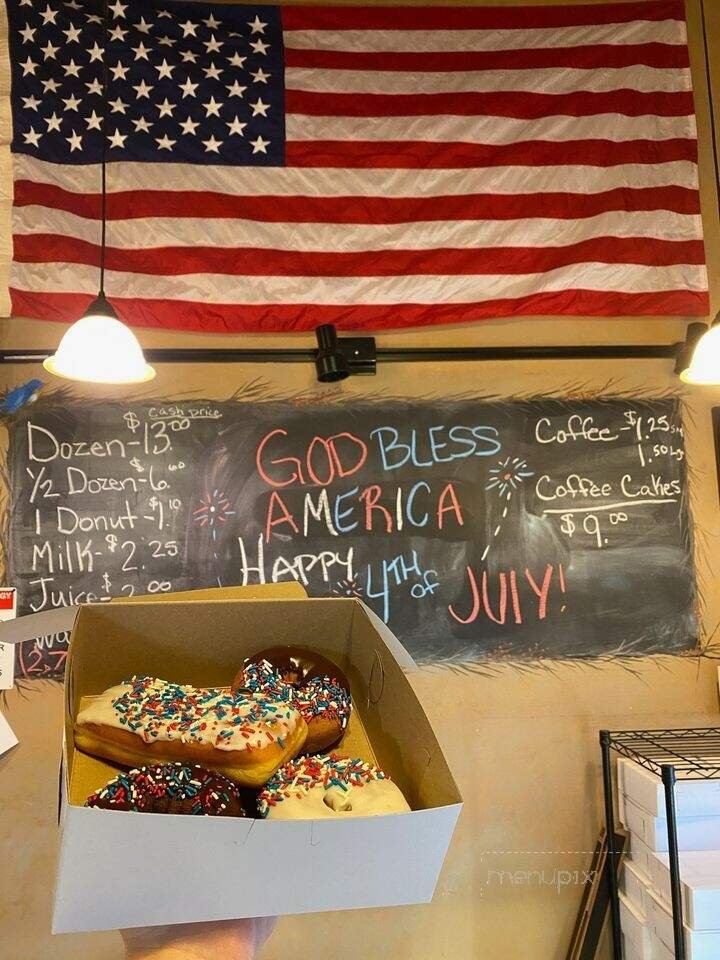 $ Cash price
Dozen-13.00
½ Dozen-$6.00
1 Donut-$1.10
Milk-$2.25
Juice-$2.00
GOD BLESS
AMERICA
HAPPY
4TH of JUlY!
Coffee-$1.25 sm
1.50 Lg
Coffee Cakes
$9.00
GY
menupix